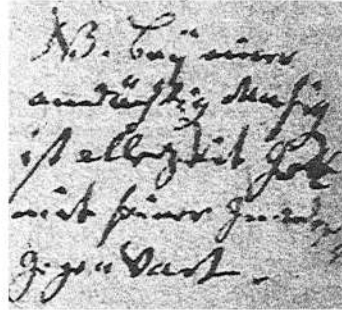 NB. Bey einer
andächtig Musig
ist allezeit Gott
mit seiner Gnaden
Gegenwart.